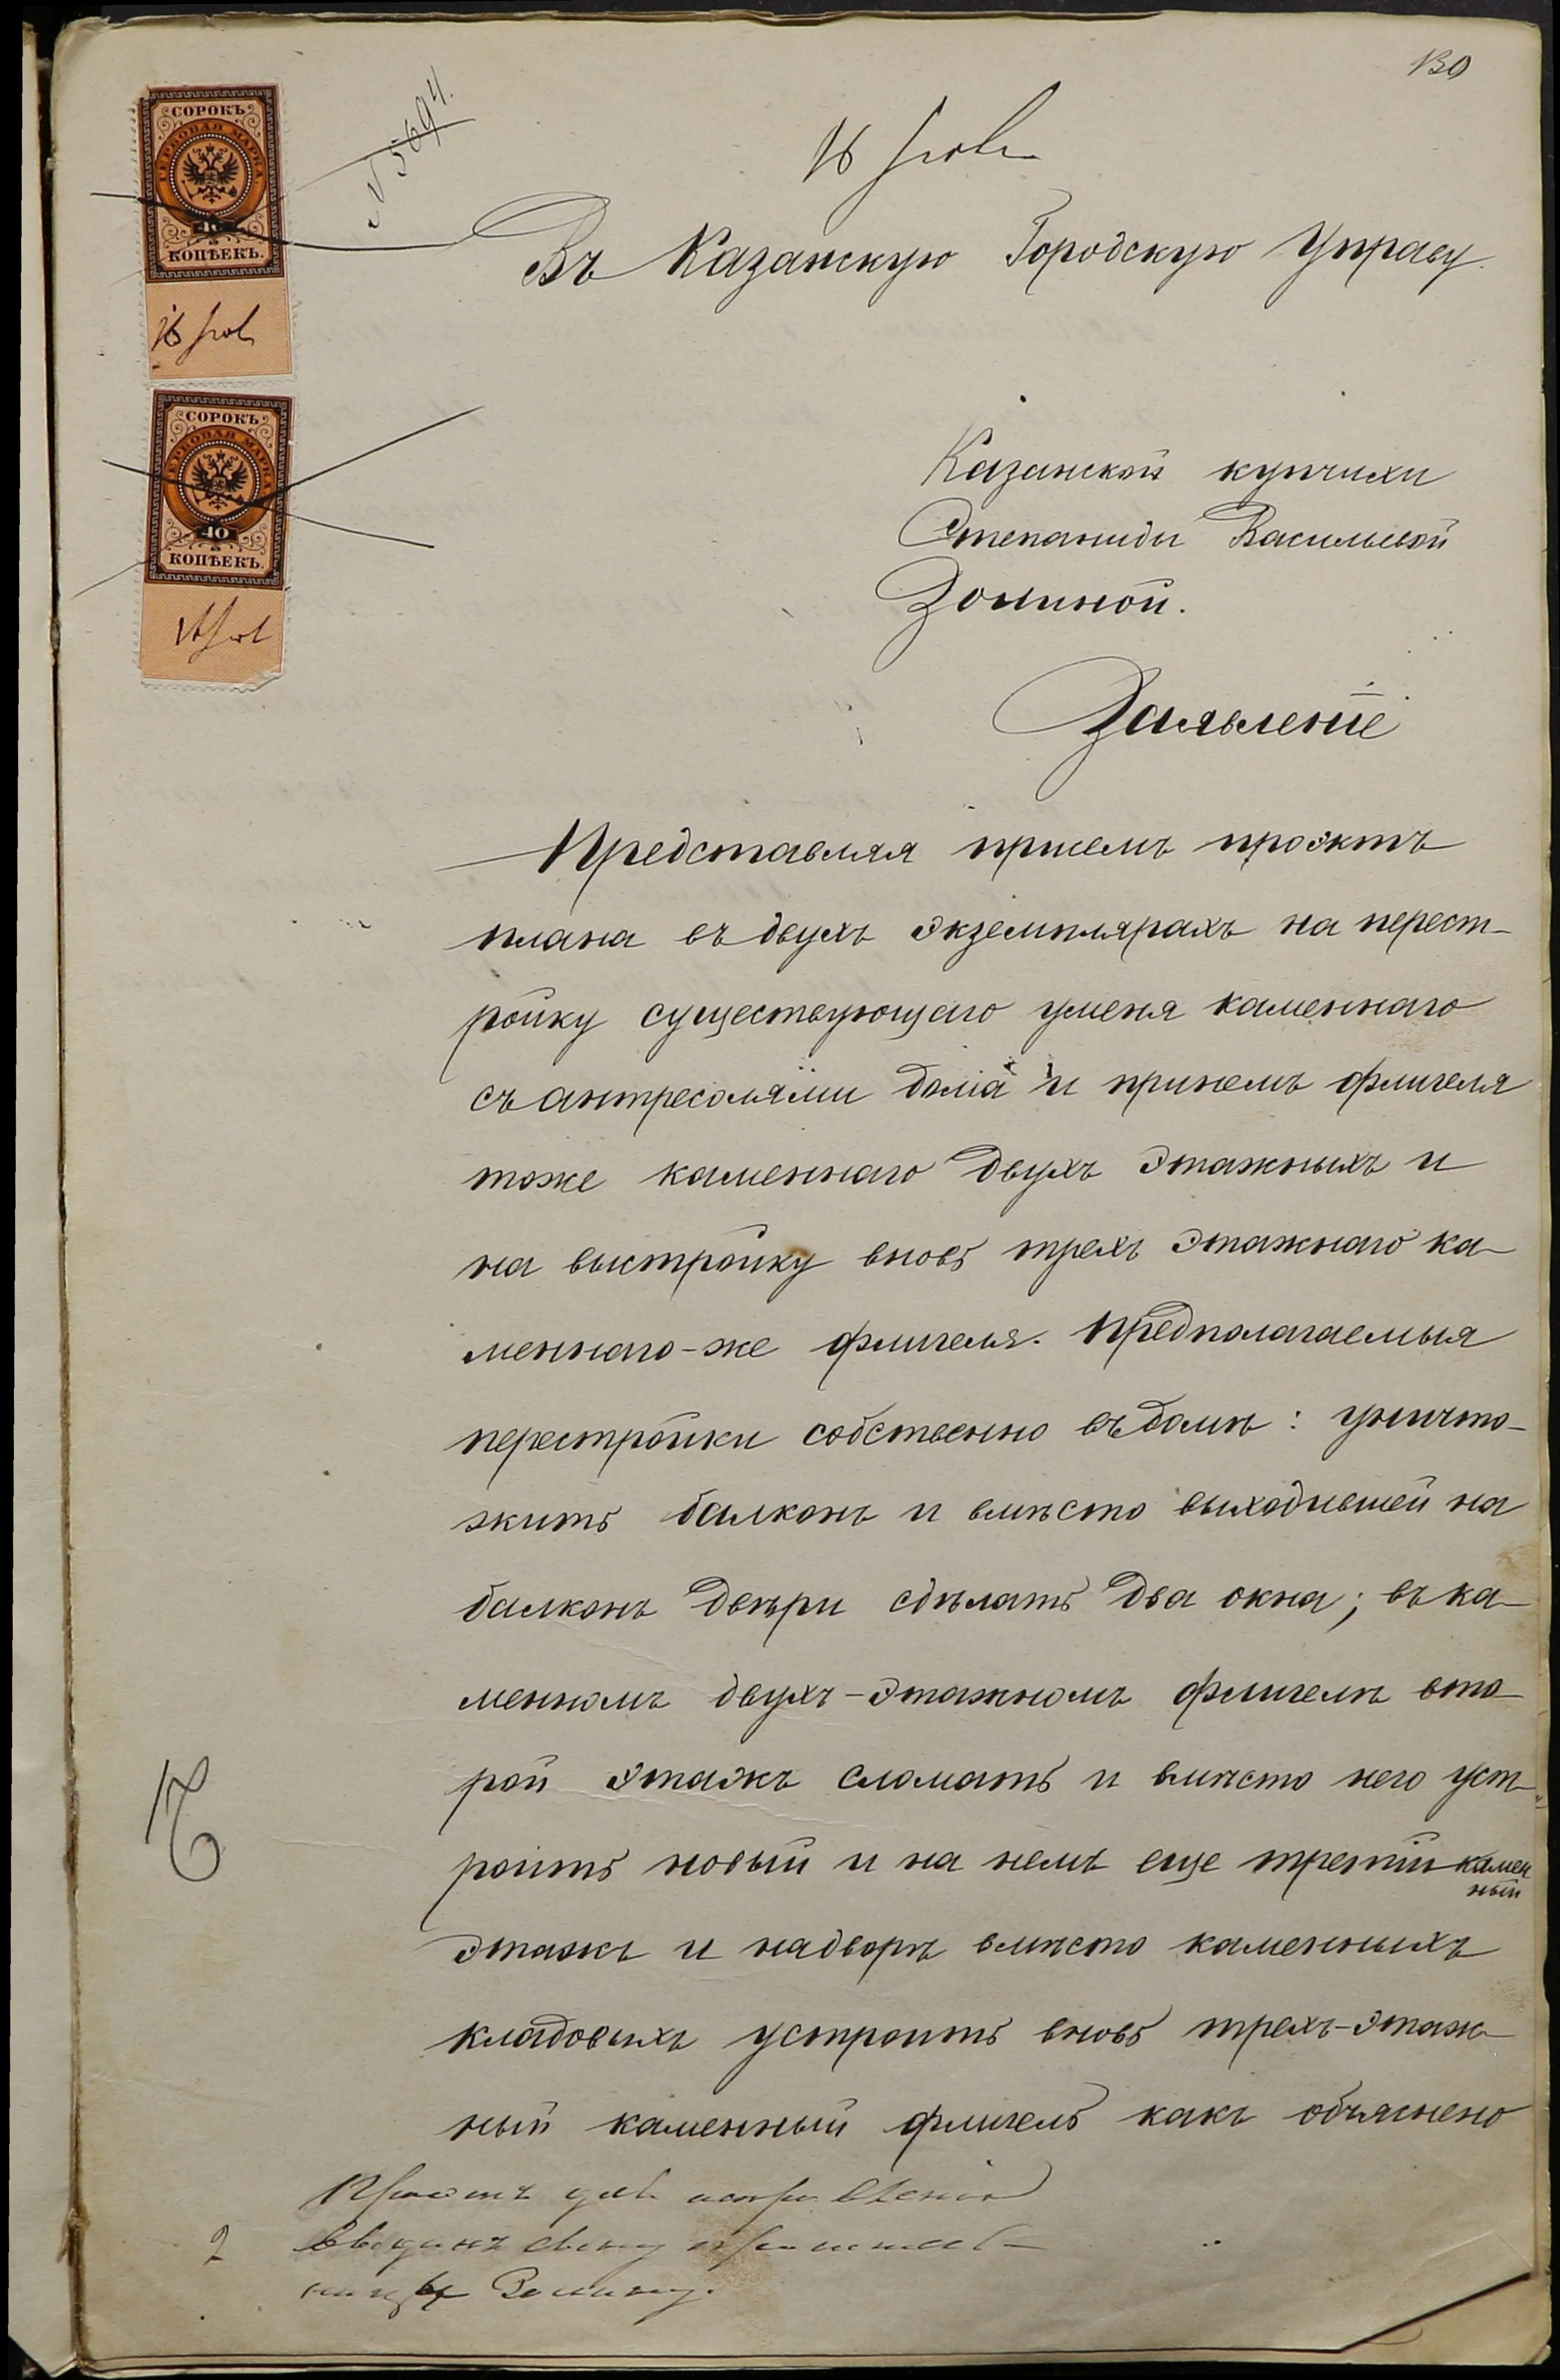 130
СОРОКЪ
ГЕРБОВАЯ МАРКА
40
КОПѢЕКЪ.
16
№ 5694.
16
Въ Казанскую Городскую Управу.
СОРОКЪ
ГЕРБОВАЯ МАРКА
40
КОПѢЕКЪ.
Казанской купчихи
Степаниды Васильевой
Золиной.
Заявленіе
Представляя присемъ проэктъ
плана въ двухъ экземплярахъ на перест-
ройку существующаго уменя каменнаго
съ антресолями дома и принемъ флигеля
тоже каменнаго двухъ этажныхъ и
на выстройку вновь трехъ этажнаго ка-
меннаго-же флигеля. Предполагаемыя
перестройки собственно въ домѣ: уничто-
жить балконъ и вмѣсто выходившей на
балконъ двѣри сдѣлать два окна; въ ка-
менномъ двухъ-этажномъ флигелѣ вто-
рой этажъ сломать и вмѣсто него уст-
роить новый и на немъ еще третій камен
ный
этажъ и надворѣ вмѣсто каменныхъ
кладовыхъ устроить вновь трехъ-этаж-
ный каменный флигель какъ объяснено